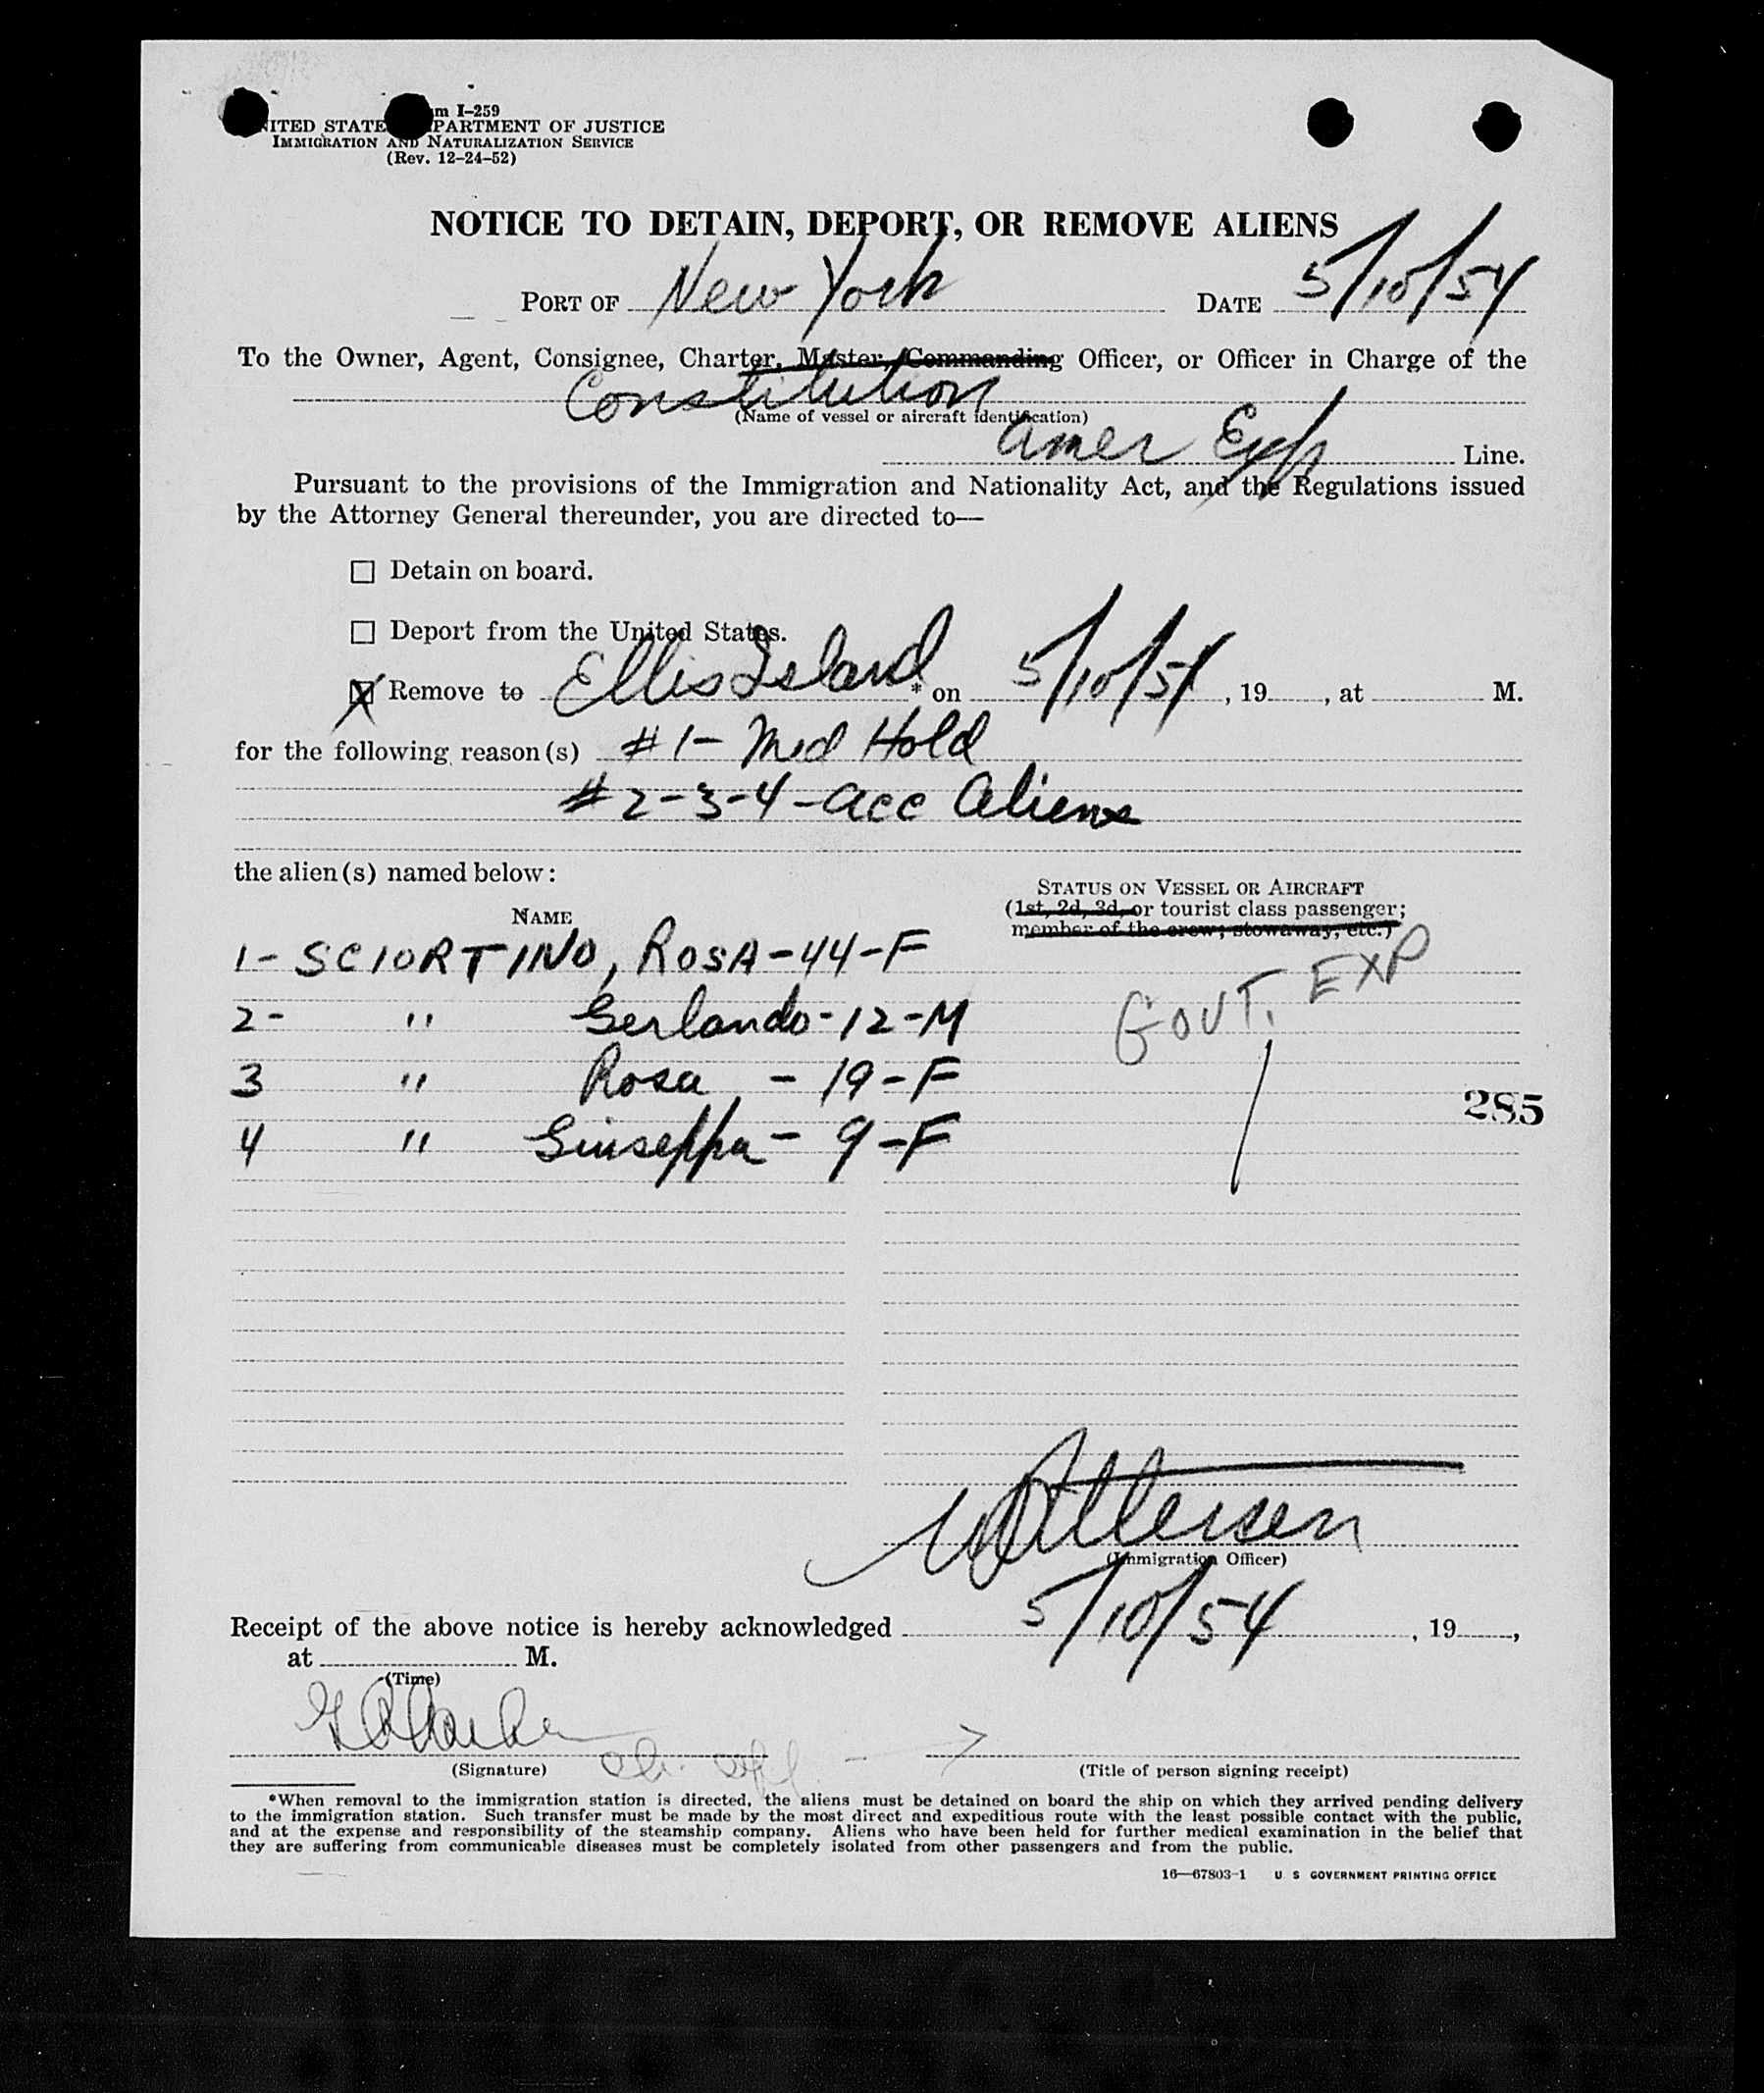 m I-259
NITED STATE PARTMENT OF JUSTICE
IMMIGRATION AND NATURALIZATION SERVICE
(Rev. 12-24-52)
NOTICE TO DETAIN, DEPORT, OR REMOVE ALIENS
PORT OF New York DATE 5/10/54
To the Owner, Agent, Consignee, Charter, Master, Commanding Officer, or Officer in Charge of the
Constitution
(Name of vessel or aircraft identification)
Amer Exp Line.
Pursuant to the provisions of the Immigration and Nationality Act, and the Regulations issued
by the Attorney General thereunder, you are directed to—
☐ Detain on board.
☐ Deport from the United States.
☒ Remove to Ellis Island * on 5/10/54, 19, at M.
for the following reason(s) #1- Med Hold
#2-3-4-acc aliens
the alien(s) named below:
STATUS ON VESSEL OR AIRCRAFT
(1st, 2d, 3d, or tourist class passenger;
member of the crew; stowaway, etc.)
NAME
1- SCIORTINO, ROSA-44-F
GOVT. EXP
2- " Gerlando-12-M
3 " Rosa - 19-F
285
4 " Giuseppa - 9-F
(Immigration Officer)
Receipt of the above notice is hereby acknowledged 5/10/54, 19,
at M.
(Time)
(Signature)
(Title of person signing receipt)
*When removal to the immigration station is directed, the aliens must be detained on board the ship on which they arrived pending delivery
to the immigration station. Such transfer must be made by the most direct and expeditious route with the least possible contact with the public,
and at the expense and responsibility of the steamship company. Aliens who have been held for further medical examination in the belief that
they are suffering from communicable diseases must be completely isolated from other passengers and from the public.
16—67803-1 U S GOVERNMENT PRINTING OFFICE